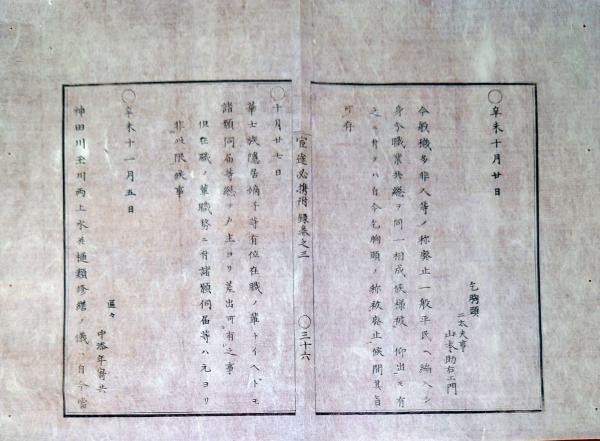 〇辛未十月廿日
乞胸頭
二太夫事
山本助右エ門
今般穢多非人等ノ称廃止一般平民ヘ編入シ
身分職業共総テ同一相成候様被 仰出モ有
之ニ付テハ自今乞胸頭ノ称被廃止候間其旨
可存
官途必携附録巻之三
〇三十六
〇十月廿七日
華士族隠居嫡子等有位在職ノ輩トイヘドモ
諸願伺届等総テ戸主ヨリ差出可有之事
但在職ノ輩職務ニ付諸願伺届等ハ元ヨリ
非此限候事
〇辛未十一月五日
区々
中添年寄共
神田川玉川両上水共樋類修繕ノ儀ハ自今当